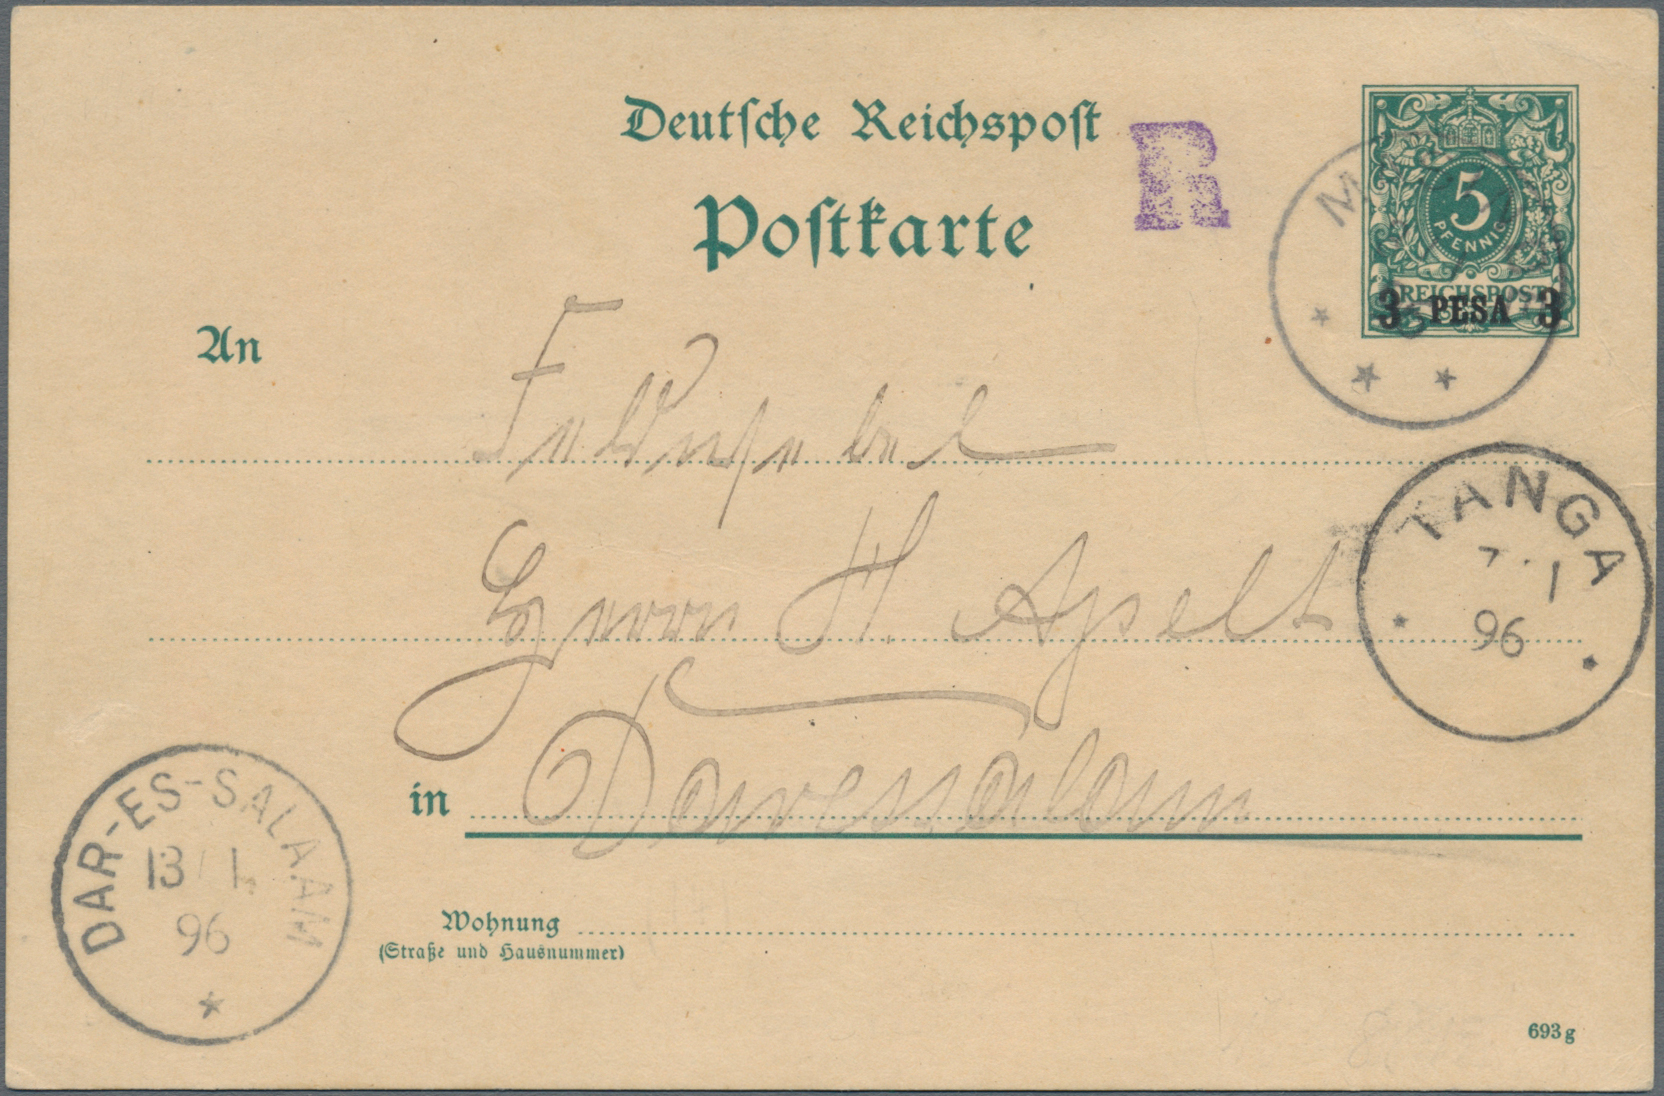 Deutsche Reichspost
R
Postkarte
5
PFENNIG
REICHSPOST
3 PESA 3
An
Feldwebel
TANGA
7 1
96
Herrn H. Apelt
in Daressalam
DAR-ES-SALAAM
13 1
96
Wohnung
(Straße und Hausnummer)
693 g